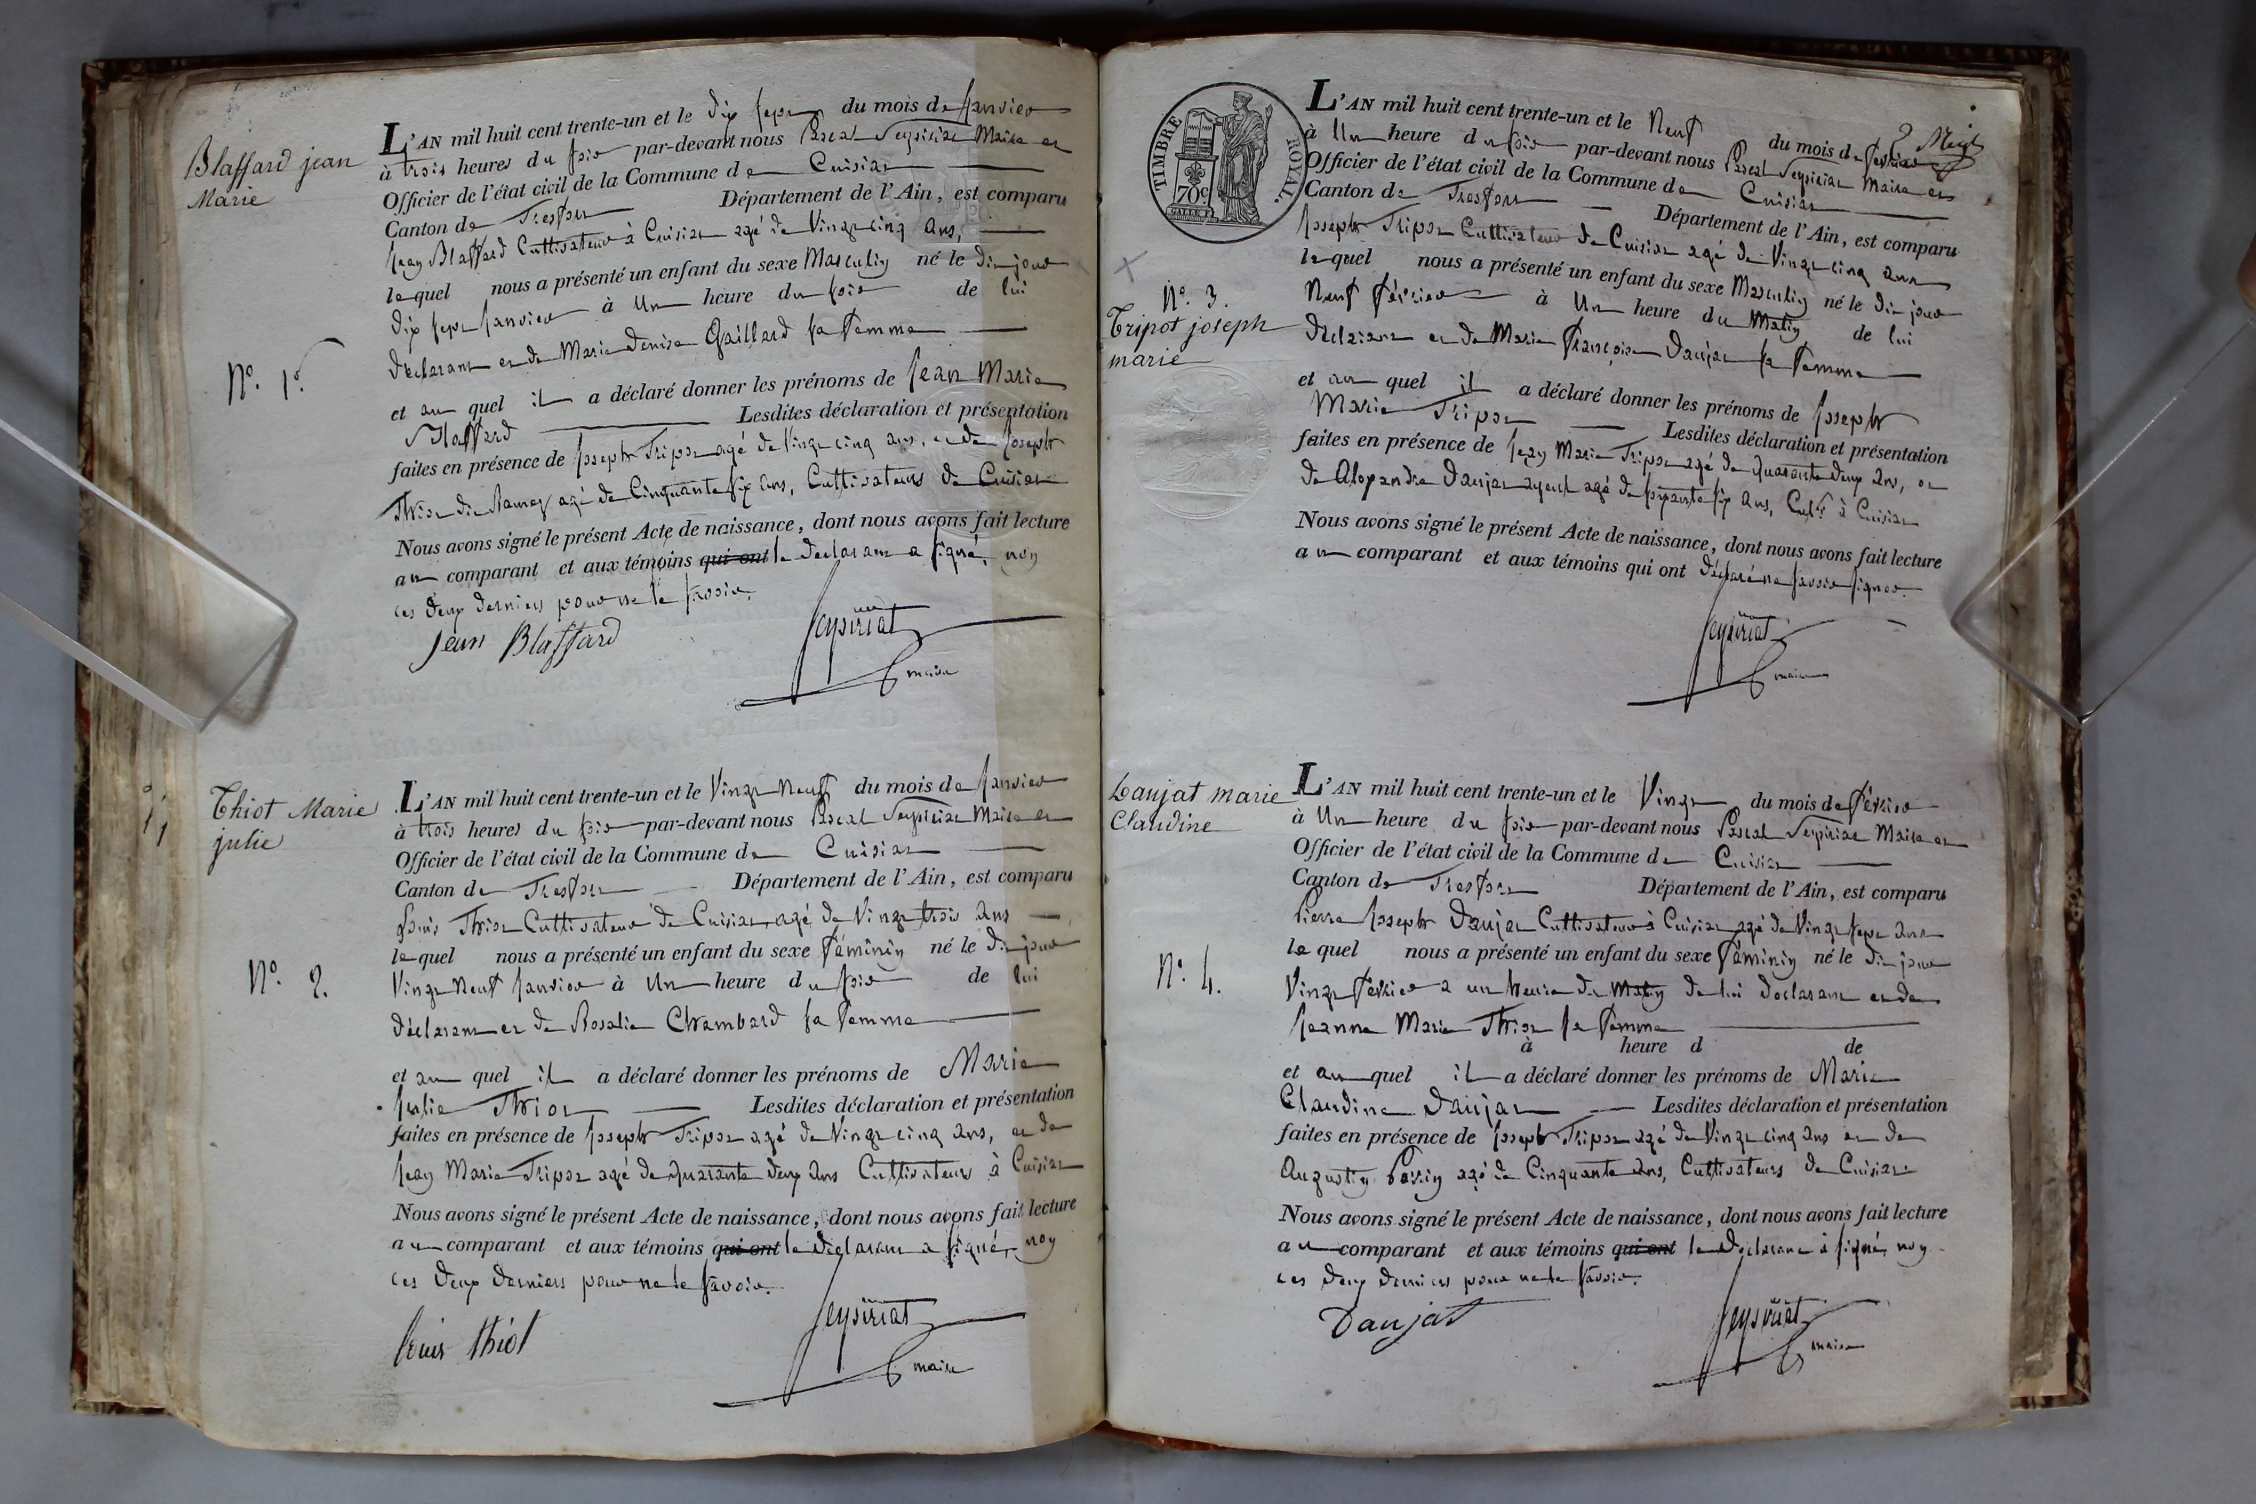 Blaffard jean
Marie
N.º 1.er
L'AN mil huit cent trente-un et le dix sept du mois de Janvier
à trois heures du soir par-devant nous Pascal Seysiriat Maire et
Officier de l'état civil de la Commune de Cuisiat
Canton de Treffort Département de l'Ain, est comparu
Jean Blaffard Cultivateur à Cuisiat agé de Vingt cinq ans,
lequel nous a présenté un enfant du sexe Masculin né le dit jour
dix sept Janvier à Un heure du soir de lui
déclarant et de Marie denise Gaillard sa femme
et au quel il a déclaré donner les prénoms de Jean Marie
Blaffard Lesdites déclaration et présentation
faites en présence de Joseph Tripot agé de Vingt cinq ans, et de Joseph
Thiot dit Ramez agé de Cinquante six ans, Cultivateurs de Cuisiat
Nous avons signé le présent Acte de naissance, dont nous avons fait lecture
au comparant et aux témoins qui ont le déclarant a signé, non
ces deux derniers pour ne le savoir.
Jean Blaffard
Seysiriat
maire
Thiot Marie
julie
N.º 2.
L'AN mil huit cent trente-un et le Vingt Neuf du mois de Janvier
à trois heures du soir par-devant nous Pascal Seysiriat Maire et
Officier de l'état civil de la Commune de Cuisiat
Canton de Treffort Département de l'Ain, est comparu
Louis Thiot Cultivateur de Cuisiat agé de Vingt trois ans
lequel nous a présenté un enfant du sexe féminin né le dit jour
Vingt Neuf Janvier à Un heure du soir de lui
déclarant et de Rosalie Chambard sa femme
et au quel il a déclaré donner les prénoms de Marie
Julie Thiot Lesdites déclaration et présentation
faites en présence de Joseph Tripot agé de Vingt cinq ans, et de
Jean Marie Tripot agé de quarante deux ans Cultivateurs à Cuisiat
Nous avons signé le présent Acte de naissance, dont nous avons fait lecture
au comparant et aux témoins qui ont le déclarant a signé, non
ces deux derniers pour ne le savoir.
Louis thiot
Seysiriat
maire
TIMBRE ROYAL.
70c
N.º 3.
Tripot joseph
marie
L'AN mil huit cent trente-un et le Neuf du mois de février
à Un heure du soir par-devant nous Pascal Seysiriat Maire et
Officier de l'état civil de la Commune de Cuisiat
Canton de Treffort Département de l'Ain, est comparu
Joseph Tripot Cultivateur de Cuisiat agé de Vingt cinq ans
lequel nous a présenté un enfant du sexe Masculin né le dit jour
Neuf février à Un heure du Matin de lui
déclarant et de Marie françoise Daujat sa femme
et au quel il a déclaré donner les prénoms de Joseph
Marie Tripot Lesdites déclaration et présentation
faites en présence de Jean Marie Tripot agé de quarante deux ans, et
de Alexandre Daujat ayeul agé de soixante six ans, Cult.rs à Cuisiat
Nous avons signé le présent Acte de naissance, dont nous avons fait lecture
au comparant et aux témoins qui ont déclaré ne savoir signer.
Seysiriat
maire
Daujat marie
Claudine
N.º 4.
L'AN mil huit cent trente-un et le Vingt du mois de février
à Un heure du soir par-devant nous Pascal Seysiriat Maire et
Officier de l'état civil de la Commune de Cuisiat
Canton de Treffort Département de l'Ain, est comparu
Pierre Joseph Daujat Cultivateur à Cuisiat agé de Vingt sept ans
lequel nous a présenté un enfant du sexe féminin né le dit jour
Vingt février a un heure du Matin de lui declarant et de
Jeanne Marie Thiot sa femme
à heure d de
et au quel il a déclaré donner les prénoms de Marie
Claudine Daujat Lesdites déclaration et présentation
faites en présence de Joseph Tripot agé de Vingt cinq ans et de
Augustin agé de Cinquante ans, Cultivateurs de Cuisiat
Nous avons signé le présent Acte de naissance, dont nous avons fait lecture
au comparant et aux témoins qui ont le declarant à signé, non
ces deux derniers pour ne le savoir.
Daujat
Seysiriat
maire